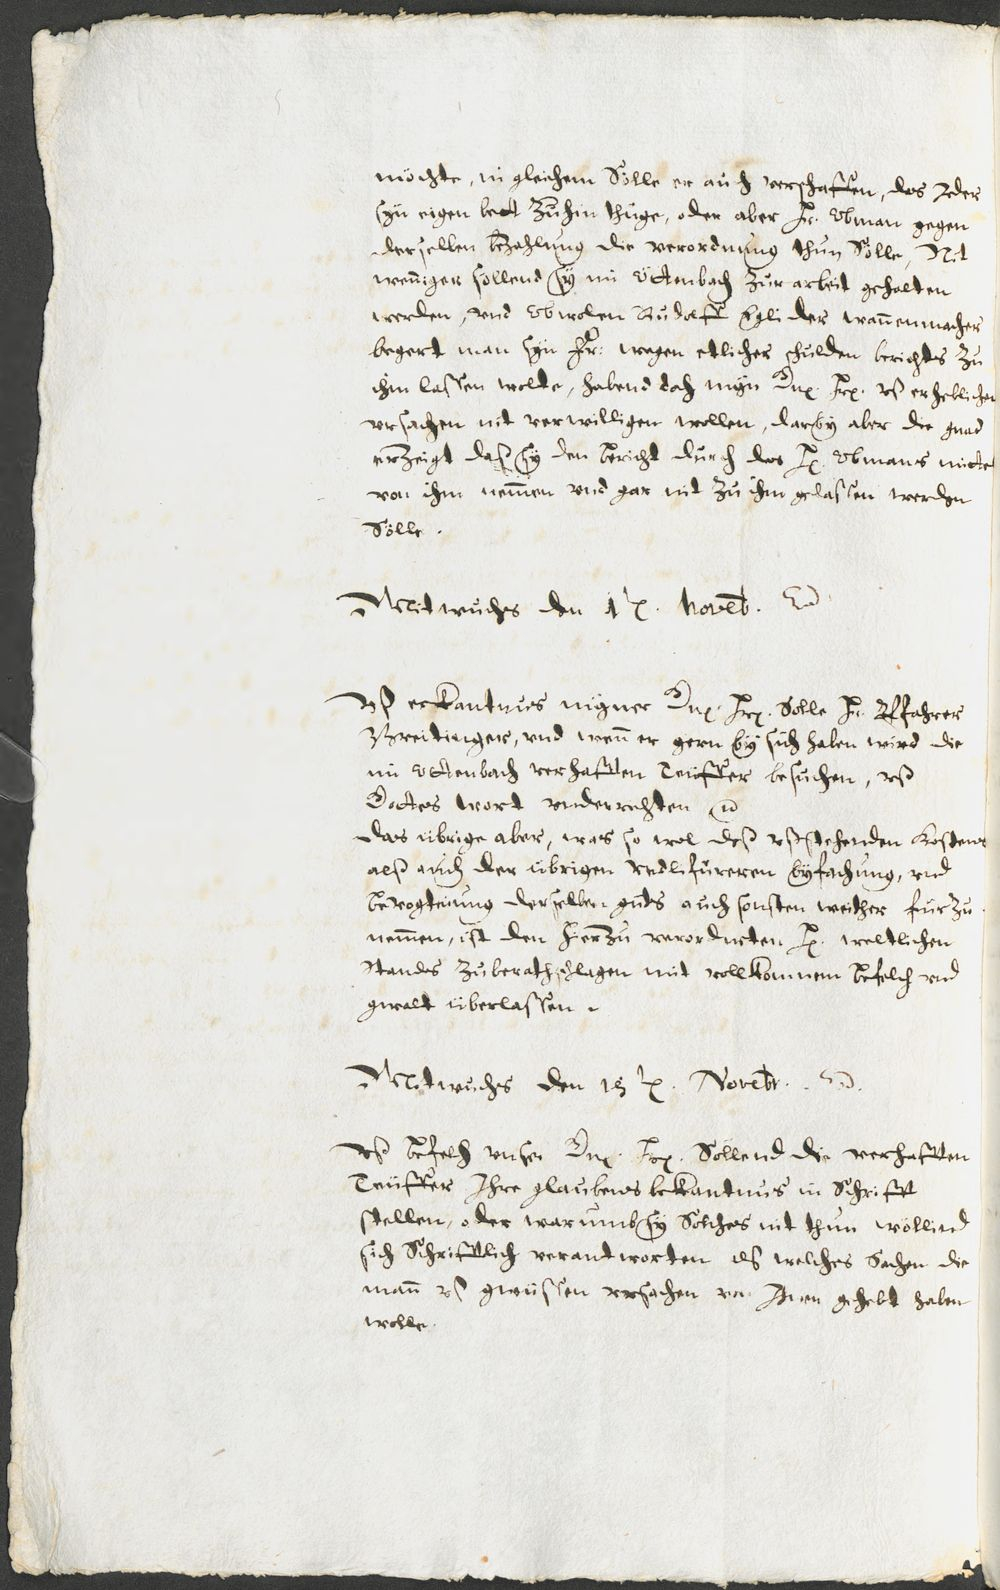 möchte, in gleichem Sölle er auch verschaffen, das Jeder
syn eigen bett Zuhin thüge, oder aber Hr. Obman gegen
derselben bezahlung die verordnung thun Sölle, Nit
weniger sollend sy im Ottenbach zur arbeit gehalten
werden, und Obwolen Rudolff Egli der wannenmacher
begert man syn Fr: wegen etlicher schulden berichts zu
ihm lassen wolte, habend doch myn Gn. Hrn. uß erheblichen
ursachen nit verwilligen wollen, darby aber die gnad
erzeigt daß sy den bericht durch des H. Obmans mittel
von ihm nemmen und gar nit zu ihm gelassen werden
Sölle.
Mitwuchs den 1 Novemb.
Uß erkantnus myner Gn. Hrn. Sölle Hr. Pfahrer
Breitinger, und wenn er gern by sich haben wird die
im Ottenbach verhafften Teüffer besuchen, uß
Gottes wort underrichten
das übrige aber, was so wol deß ußstehenden Kostens
alß auch der übrigen redlifüreren byfachung, und
bevogtiung derselben guts auch sonsten weither fürzu
nemmen, ist den hierzu verordneten H. weltlichen
Standes zuberathschlagen mit vollkomnem befelch und
gwalt überlassen.
Mitwuchs den 15 Novembr.
Uß befelch unser Gn. Hrn. Söllend die verhafften
Teüffer Ihre glaubens bekantnus in Schrifft
stellen, oder warumb sy Solches nit thun wöllind
sich Schrifftlich verantworten als welches Sachen die
man uß gwüssen ursachen von Inen gehebt haben
wolle.